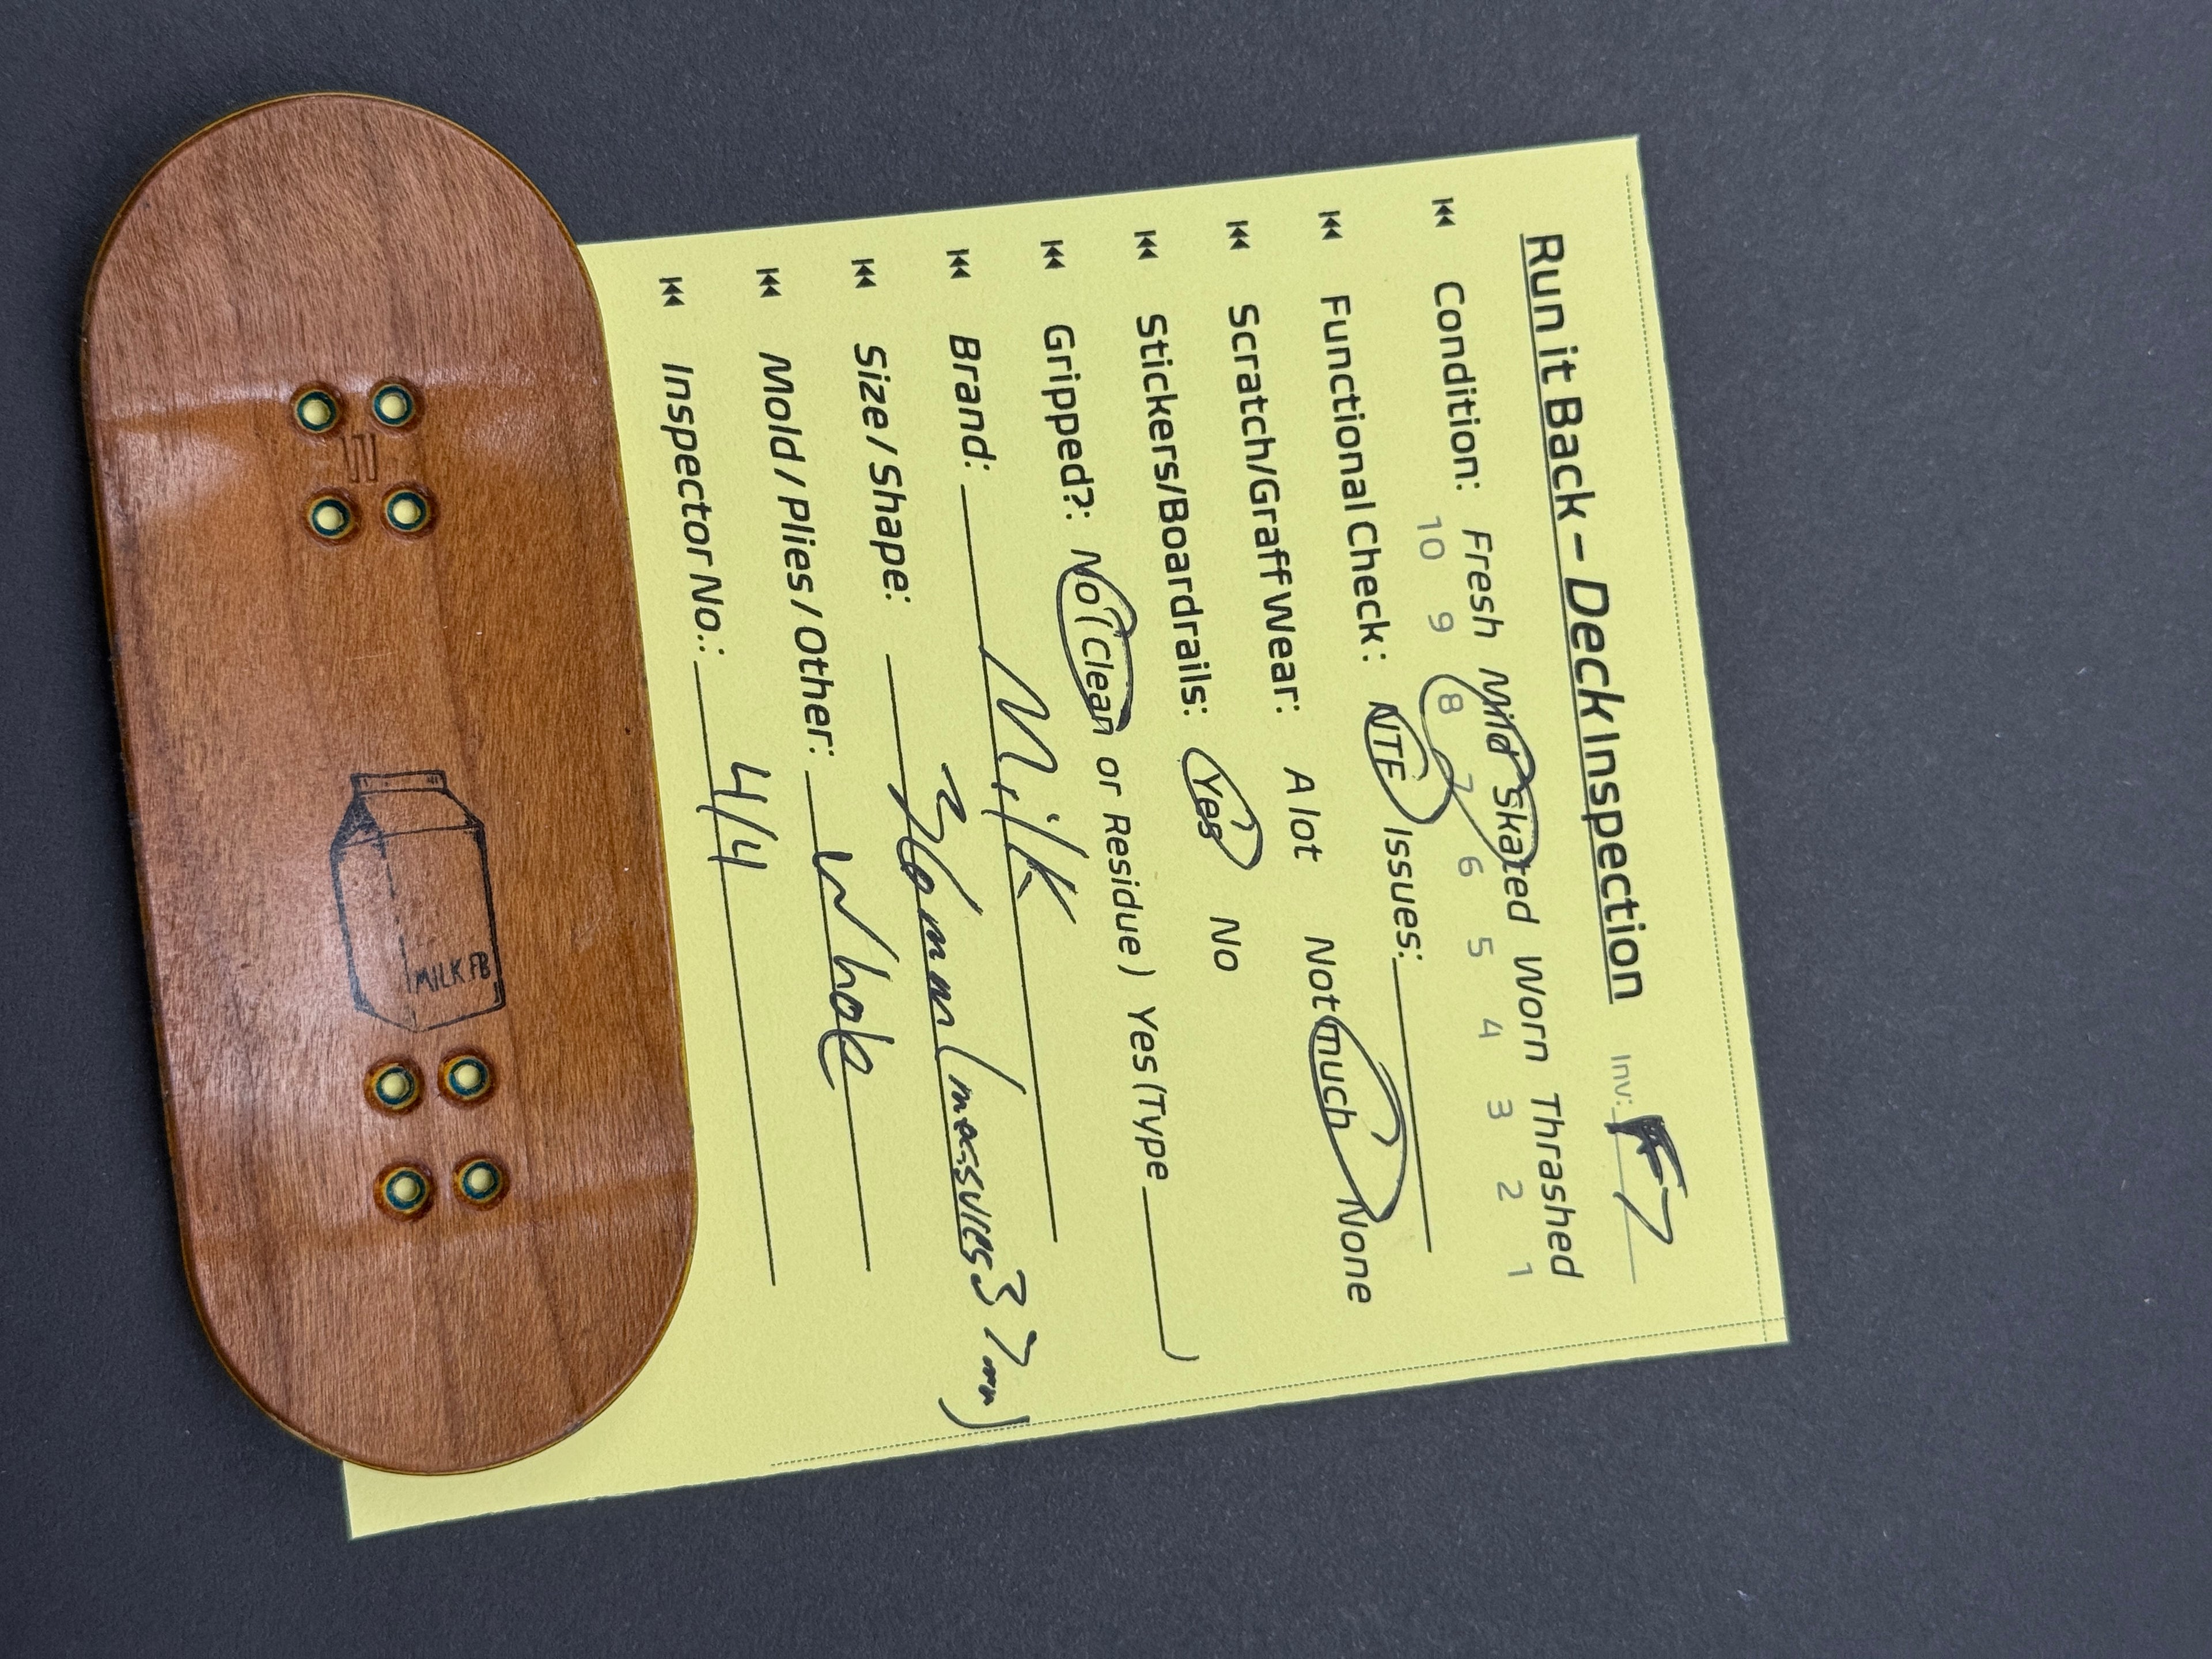 Run it Back – Deck Inspection Inv: 7
Condition: Fresh Mild Skated Worn Thrashed
10 9 8 7 6 5 4 3 2 1
Functional Check: NTF Issues:
Scratch/Graff Wear: A lot Not much None
Stickers/Boardrails: Yes No
Gripped?: No (Clean or Residue) Yes (Type )
Brand: Milk
Size / Shape: 36mm (measures 37mm)
Mold / Plies / Other: Whole
Inspector No.: 4/4
MILK FB